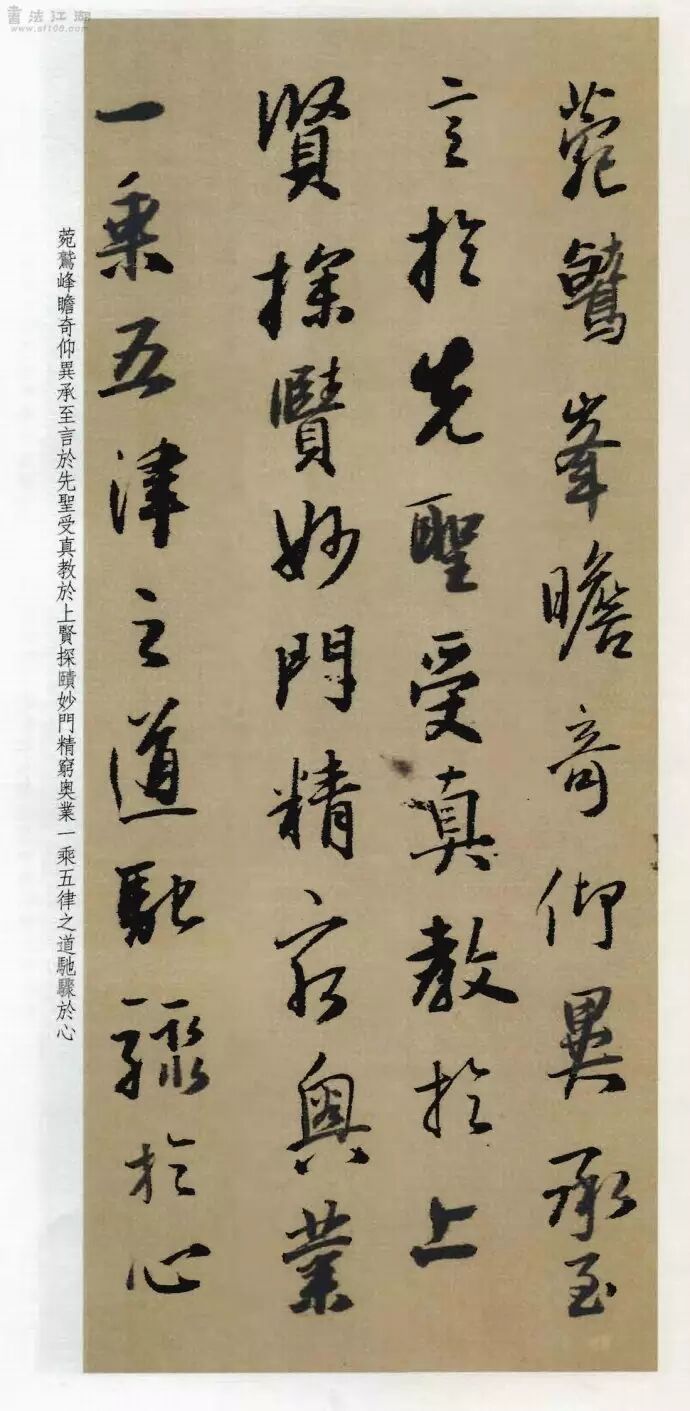 書法江湖
www.sf108.com
菀鷲峯瞻奇仰異承至
言於先聖受真教於上
賢探賾妙門精窮奧業
一乘五律之道馳驟於心
菀鷲峰瞻奇仰異承至言於先聖受真教於上賢探賾妙門精窮奧業一乘五律之道馳驟於心